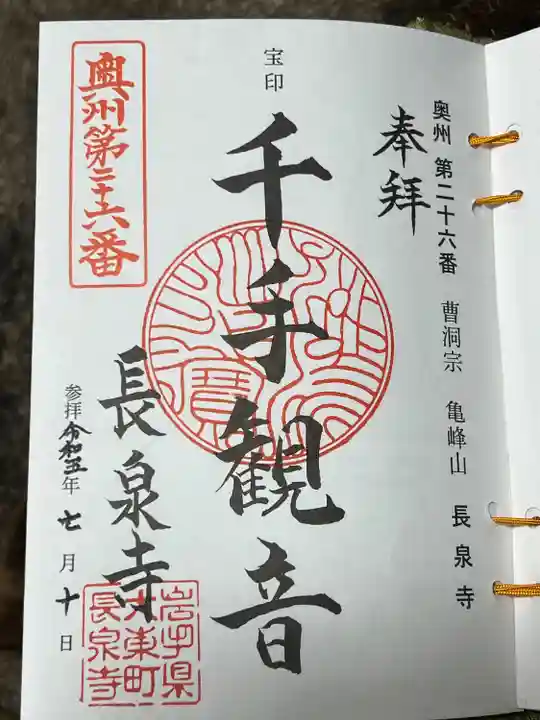 奥州 第二十六番 曹洞宗 亀峰山 長泉寺
奉拝
宝印
千手観音
長泉寺
奥州第二十六番
参拝令和五年七月十日
岩手県
大東町
長泉寺